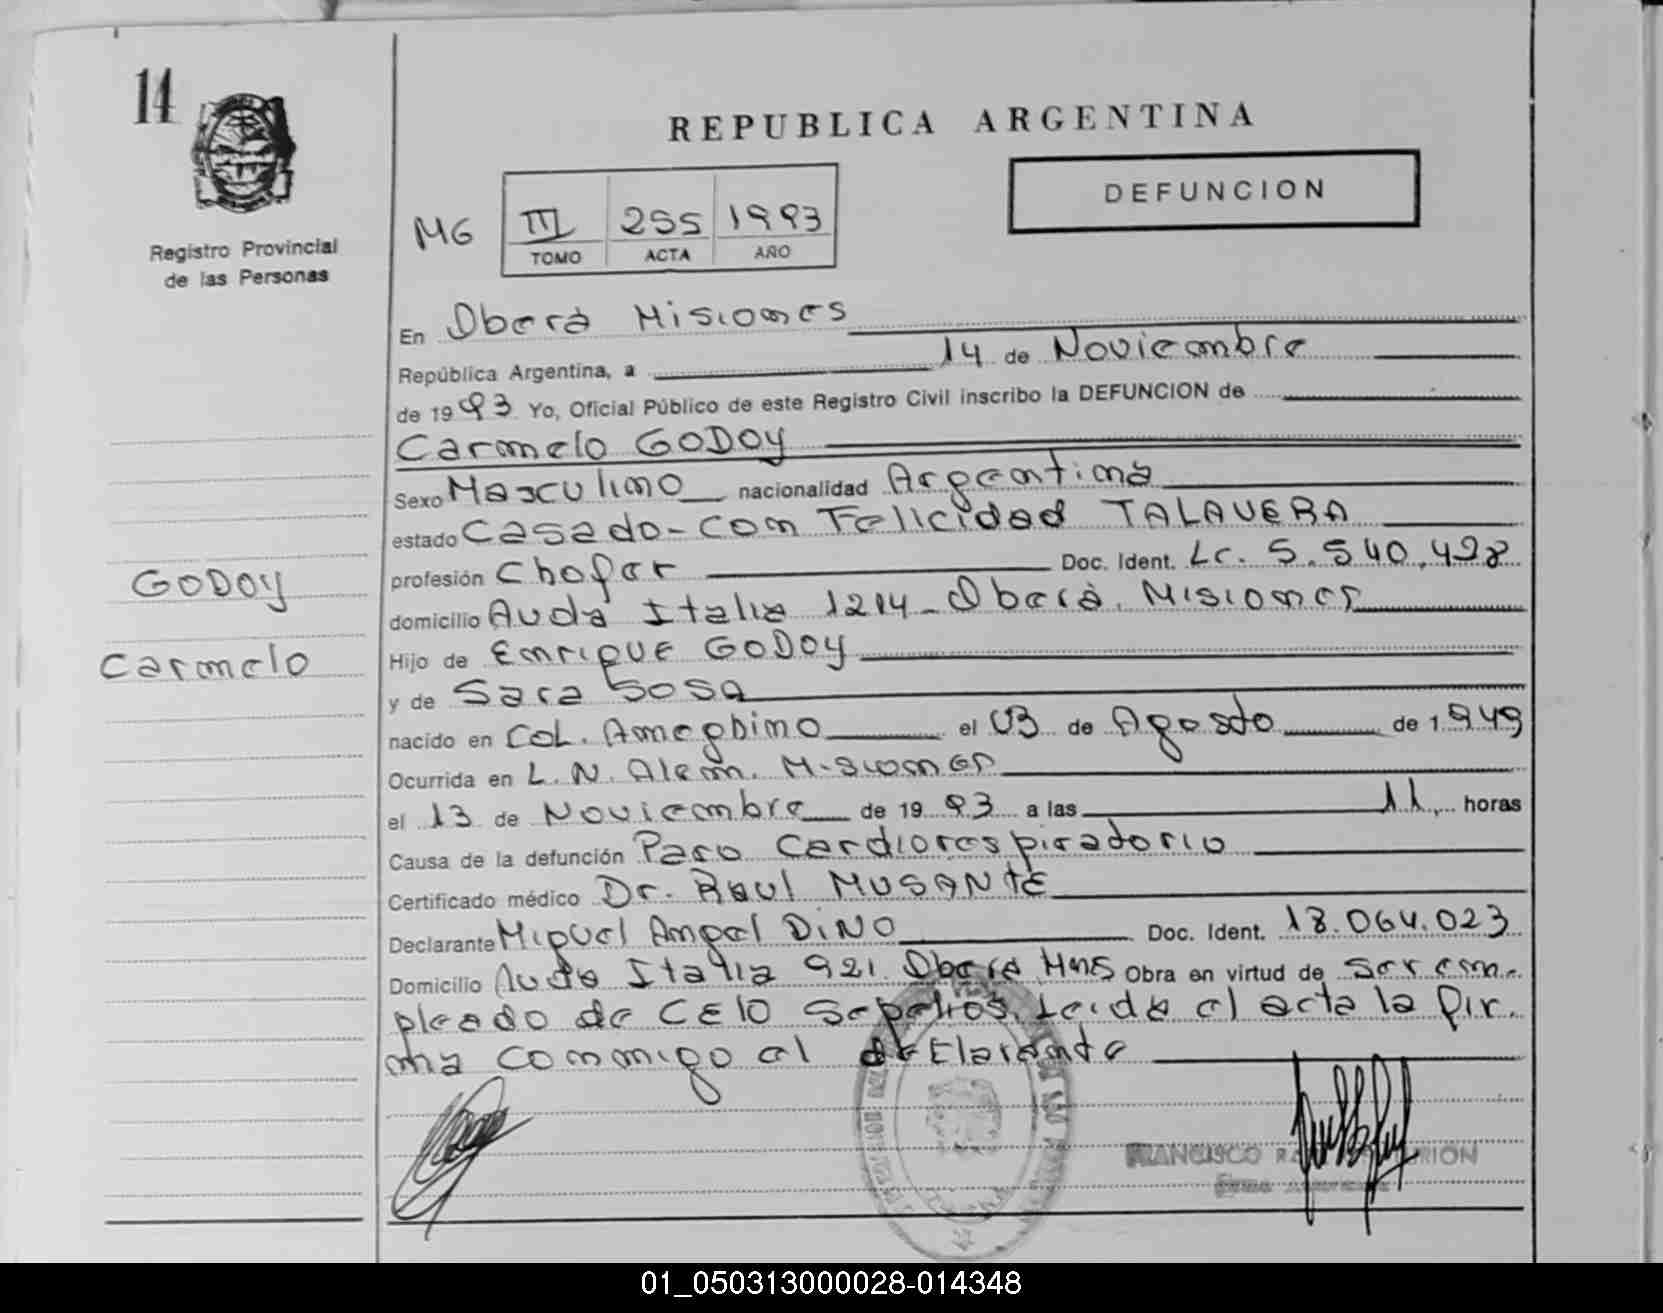 14
Registro Provincial
de las Personas
REPUBLICA ARGENTINA
DEFUNCION
MG III 255 1993
TOMO ACTA AÑO
En Oberá Misiones
República Argentina, a 14 de Noviembre
de 1993 Yo, Oficial Público de este Registro Civil inscribo la DEFUNCION de
Carmelo GODOY
Sexo Masculino nacionalidad Argentina
estado Casado-con Felicidad TALAVERA
profesión Chofer Doc. Ident. Lc. 5.540.428
domicilio Avda Italia 1214-Oberá. Misiones
Hijo de Enrique GODOY
y de Sara SOSA
nacido en Col. Ameghino el 03 de Agosto de 1949
Ocurrida en L. N. Alem. Misiones
el 13 de Noviembre de 1993 a las 11 horas
Causa de la defunción Paro Cardiorespiratorio
Certificado médico Dr. Raul MUSANTE
Declarante Miguel Angel DINO Doc. Ident. 18.064.023
Domicilio Avda Italia 921 Oberá Mnes Obra en virtud de Ser em-
pleado de CELO Sepelios. Leida el acta la fir-
ma conmigo el declarante
GODOY
Carmelo
FRANCISCO
01_050313000028-014348